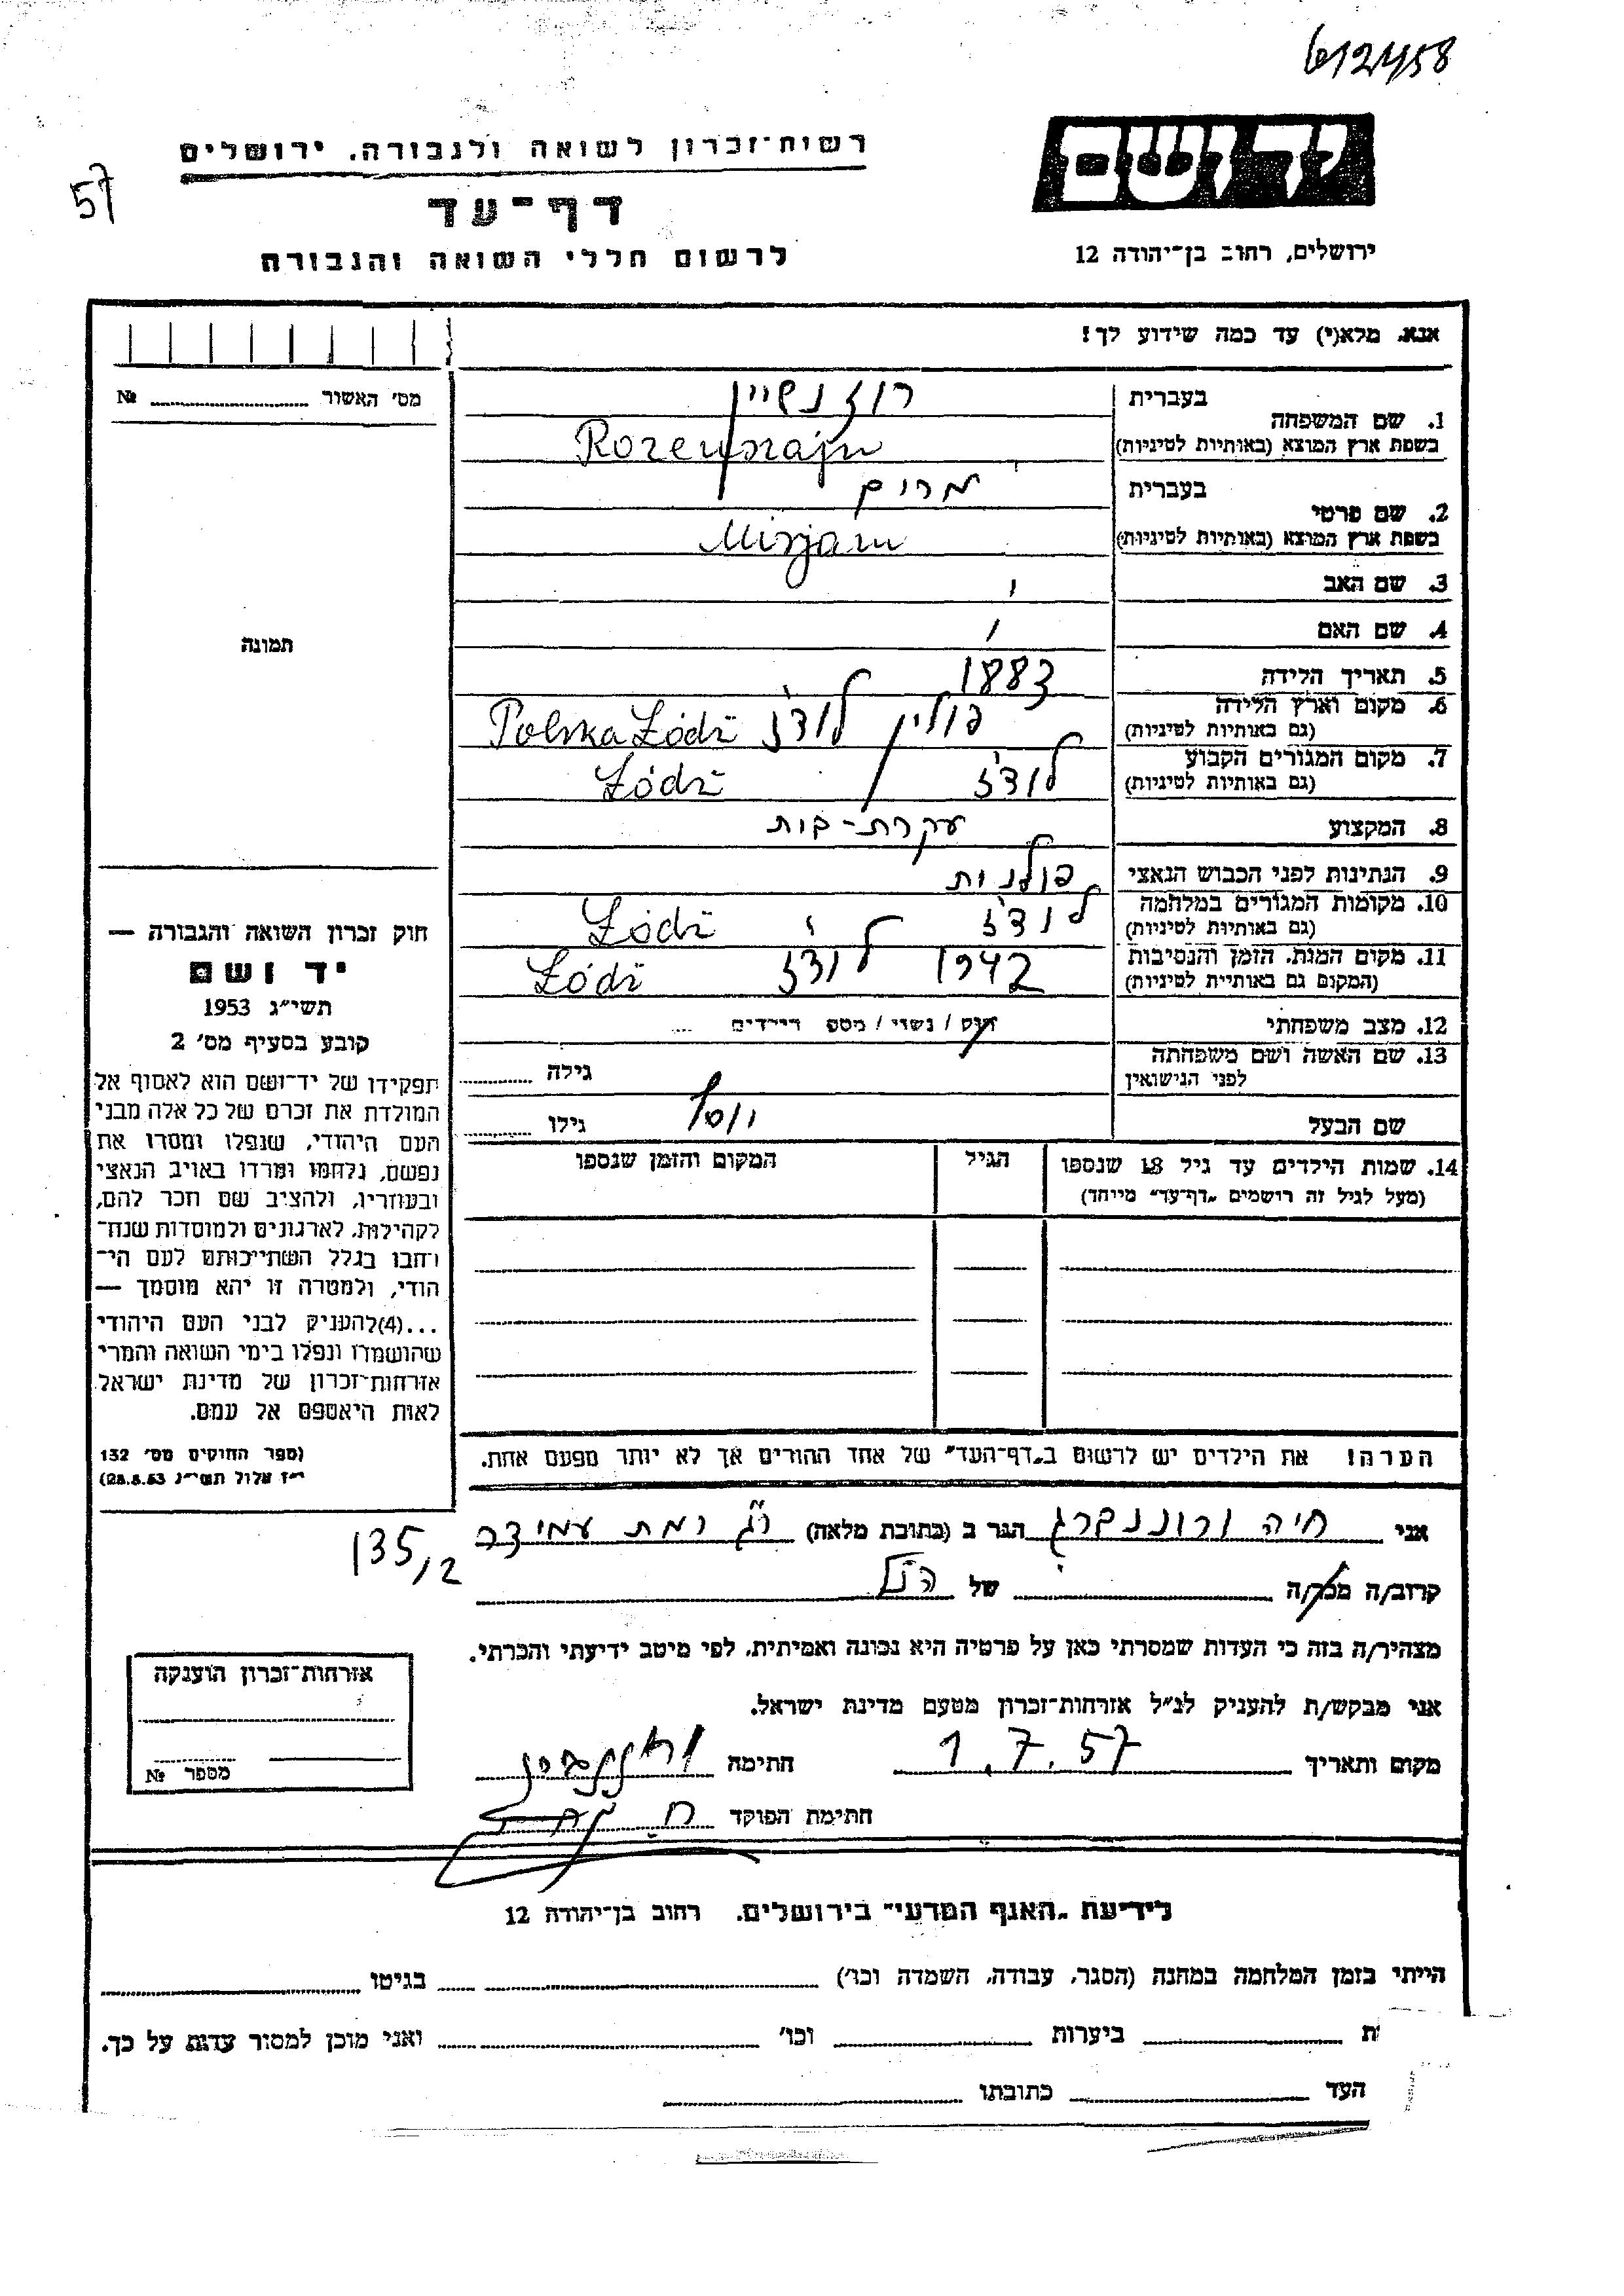 612458
57
רשות־זכרון לשואה ולגבורה, ירושלים
יד ושם
דף־עד
לרשום חללי השואה והגבורה
ירושלים, רחוב בן־יהודה 12
אנא, מלא(י) עד כמה שידוע לך!
מס' האשור № 
1. שם המשפחה
בעברית רוזנשיין
בשפת ארץ המוצא (באותיות לטיניות) Rozenszajn
2. שם פרטי
בעברית מרים
בשפת ארץ המוצא (באותיות לטיניות) Mirjam
3. שם האב
4. שם האם
תמונה
5. תאריך הלידה 1883
6. מקום וארץ הלידה (גם באותיות לטיניות) פולין לודז' Polska Łódź
7. מקום המגורים הקבוע (גם באותיות לטיניות) לודז' Łódź
8. המקצוע עקרת-בית
9. הנתינות לפני הכבוש הנאצי פולנית
10. מקומות המגורים במלחמה (גם באותיות לטיניות) לודז' Łódź
11. מקום המות, הזמן והנסיבות (המקום גם באותיות לטיניות) 1942 לודז' Łódź
12. מצב משפחתי רווק / נשוי / מספר הילדים ...
13. שם האשה ושם משפחתה לפני הנישואין גילה
שם הבעל גילו
14. שמות הילדים עד גיל 18 שנספו
(מעל לגיל זה רושמים „דף־עד” מייחד)
הגיל
המקום והזמן שנספו
חוק זכרון השואה והגבורה —
יד ושם
תשי״ג 1953
קובע בסעיף מס' 2
תפקידו של יד־ושם הוא לאסוף אל
המולדת את זכרם של כל אלה מבני
העם היהודי, שנפלו ומסרו את
נפשם, נלחמו ומרדו באויב הנאצי
ובעוזריו, ולהציב שם וזכר להם,
לקהילות, לארגונים ולמוסדות שנח־
רבו בגלל השתייכותם לעם הי־
הודי, ולמטרה זו יהא מוסמך —
...(4) להעניק לבני העם היהודי
שהושמדו ונפלו בימי השואה והמרי
אזרחות־זכרון של מדינת ישראל
לאות היאספם אל עמם.
(ספר החוקים מס' 132
י״ז אלול תשי״ג 28.8.53)
הערה! את הילדים יש לרשום ב„דף־העד” של אחד ההורים אך לא יותר מפעם אחת.
אני חיה הגר ב (כתובת מלאה) ר״ג רמת עמידר
135/2
קרוב/ה מכר/ה של הנ״ל
מצהיר/ה בזה כי העדות שמסרתי כאן על פרטיה היא נכונה ואמיתית, לפי מיטב ידיעתי והכרתי.
אני מבקש/ת להעניק לנ״ל אזרחות־זכרון מטעם מדינת ישראל.
מקום ותאריך 1.7.57 חתימה
חתימת הפוקד
אזרחות־זכרון הוענקה
מספר №
לידיעת „האגף המדעי” בירושלים, רחוב בן־יהודה 12
הייתי בזמן המלחמה במחנה (הסגר, עבודה, השמדה וכו') בגיטו
ת ביערות וכו' ואני מוכן למסור עדות על כך.
העד כתובתו